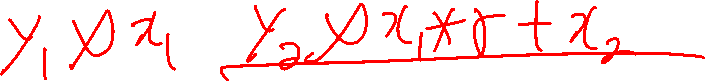 y₁ ∅ x₁ y₂ ∅ x₁ * r + x₂